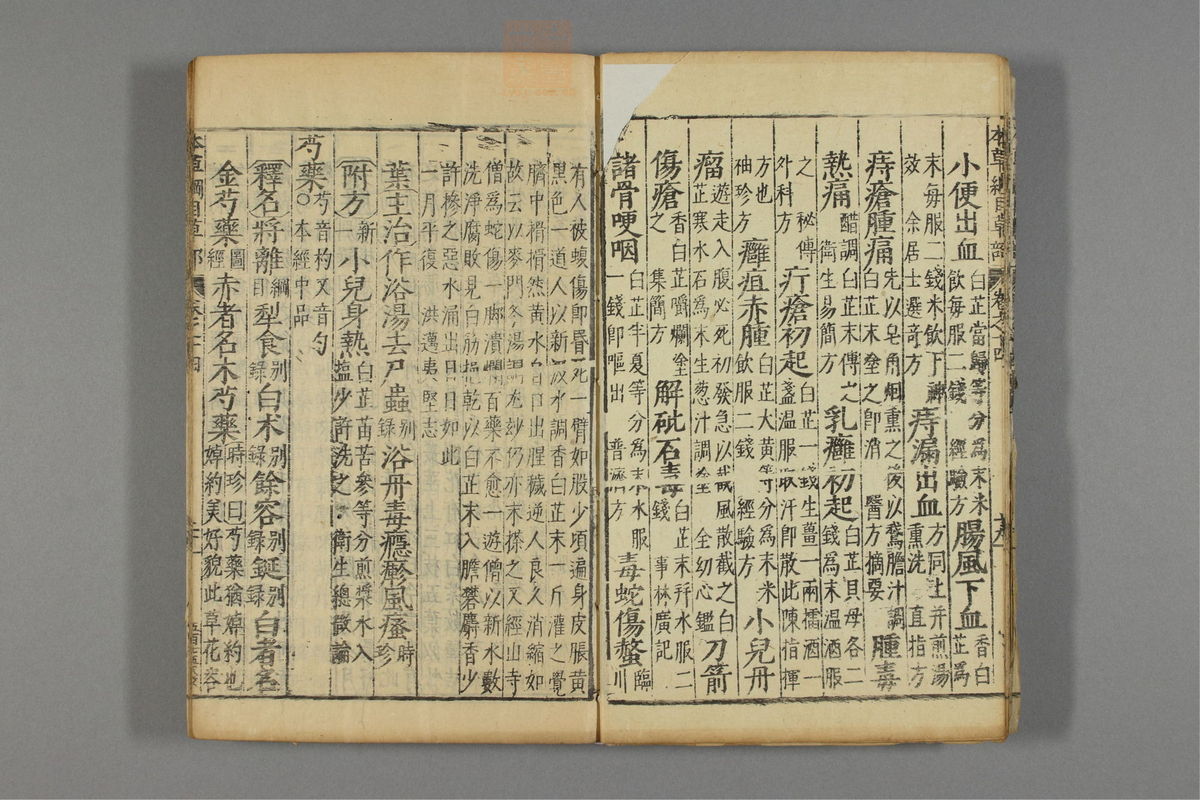 本草綱目草部 卷之十四
小便出血白芷當歸等分爲末米飲每服二錢 經驗方 腸風下血香白芷爲
末每服二錢米飲下神效 余居士選奇方 痔漏出血方同上并煎湯熏洗 直指方
痔瘡腫痛先以皂角烟熏之後以鵞膽汁調白芷末塗之卽消 醫方摘要 腫毒
熱痛醋調白芷末傅之 衛生易簡方 乳癰初起白芷貝母各二錢爲末温酒服
之 秘傳外科方 疔瘡初起白芷一錢生薑一兩擂酒一盞温服取汗卽散此陳指揮
方也 袖珍方 癰疽赤腫白芷大黄等分爲末米飲服二錢 經驗方 小兒丹
瘤遊走入腹必死初發急以截風散截之白芷寒水石爲末生葱汁調塗 全幼心鑑 刀箭
傷瘡香白芷嚼爛塗之 集簡方 解砒石毒白芷末井水服二錢 事林廣記
諸骨哽咽白芷半夏等分爲末水服一錢卽嘔出 普濟方 毒蛇傷螫臨川
有人被蝮傷卽昏死一臂如股少頃遍身皮脹黄
黑色一道人以新汲水調香白芷末一斤灌之覺
臍中搰搰然黄水自口出腥穢逆人良久消縮如
故云以麥門冬湯調尤妙仍亦末搽之又經山寺
僧爲蛇傷一脚潰爛百藥不愈一遊僧以新水數
洗淨腐敗見白筋挹乾以白芷末入膽礬麝香少
許摻之惡水涌出日日如此
一月平復 洪邁夷堅志
葉主治作浴湯去尸蟲別錄浴丹毒癮疹風瘙時珍
附方新一小兒身熱白芷苗苦參等分煎漿水入鹽少許洗之 衛生總微論
芍藥○芍音杓又音勺 本經中品
釋名將離綱目犁食別錄白术別錄餘容別錄鋋別錄白者名
金芍藥圖經赤者名木芍藥時珍曰芍藥猶婥約也婥約美好貌此草花容
本草綱目草部